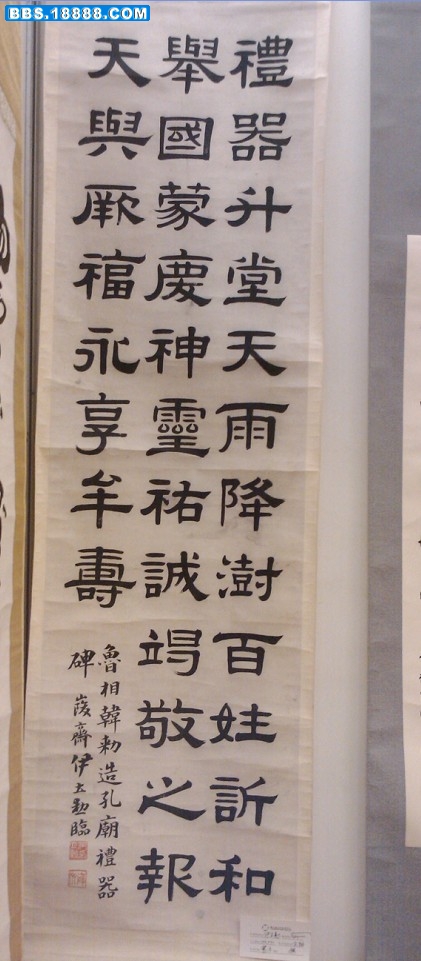 BBS.18888.COM
禮器升堂天雨降澍百姓訢和
舉國蒙慶神靈祐誠竭敬之報
天與厥福永享牟壽
魯相韓勅造孔廟禮器
碑 齋伊立勳臨